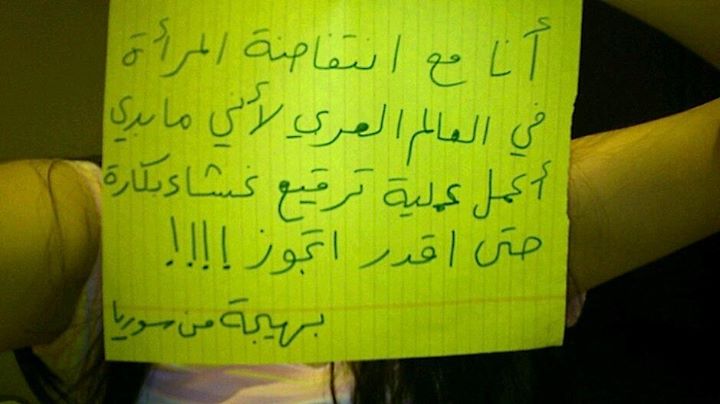 أنا مع انتفاضة المرأة
في العالم العربي لأني ما بدي
أعمل عملية ترقيع غشاء بكارة
حتى اقدر اتجوز !!!!
بهيجة من سوريا